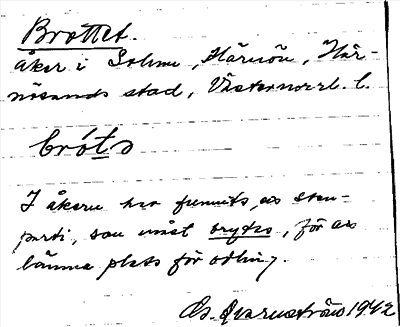 Brottet.
åker i Solum, Härnön, Här-
nösands stad, Västernorrl. l.
brót
I åkern har funnits en sten-
parti, som måst brytas, för att
lämna plats för odling.
1942